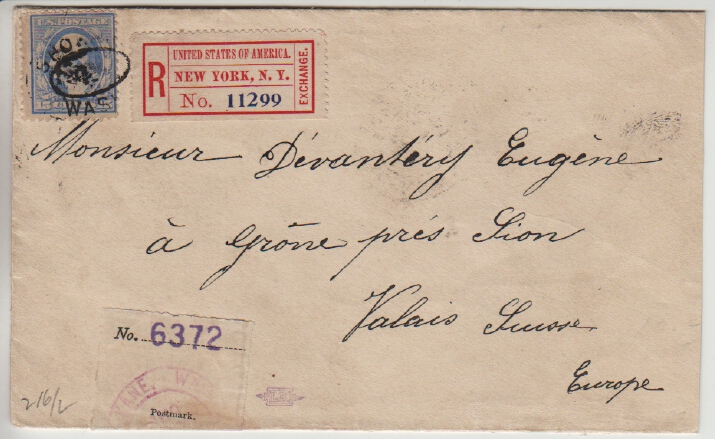 U.S. POSTAGE
WAS
R
UNITED STATES OF AMERICA.
NEW YORK, N. Y.
No. 11299
EXCHANGE.
Monsieur Dévantéry Eugène
à Grône prés Sion
Valais Suisse
Europe
No. 6372
TANE W
Postmark.
216/2